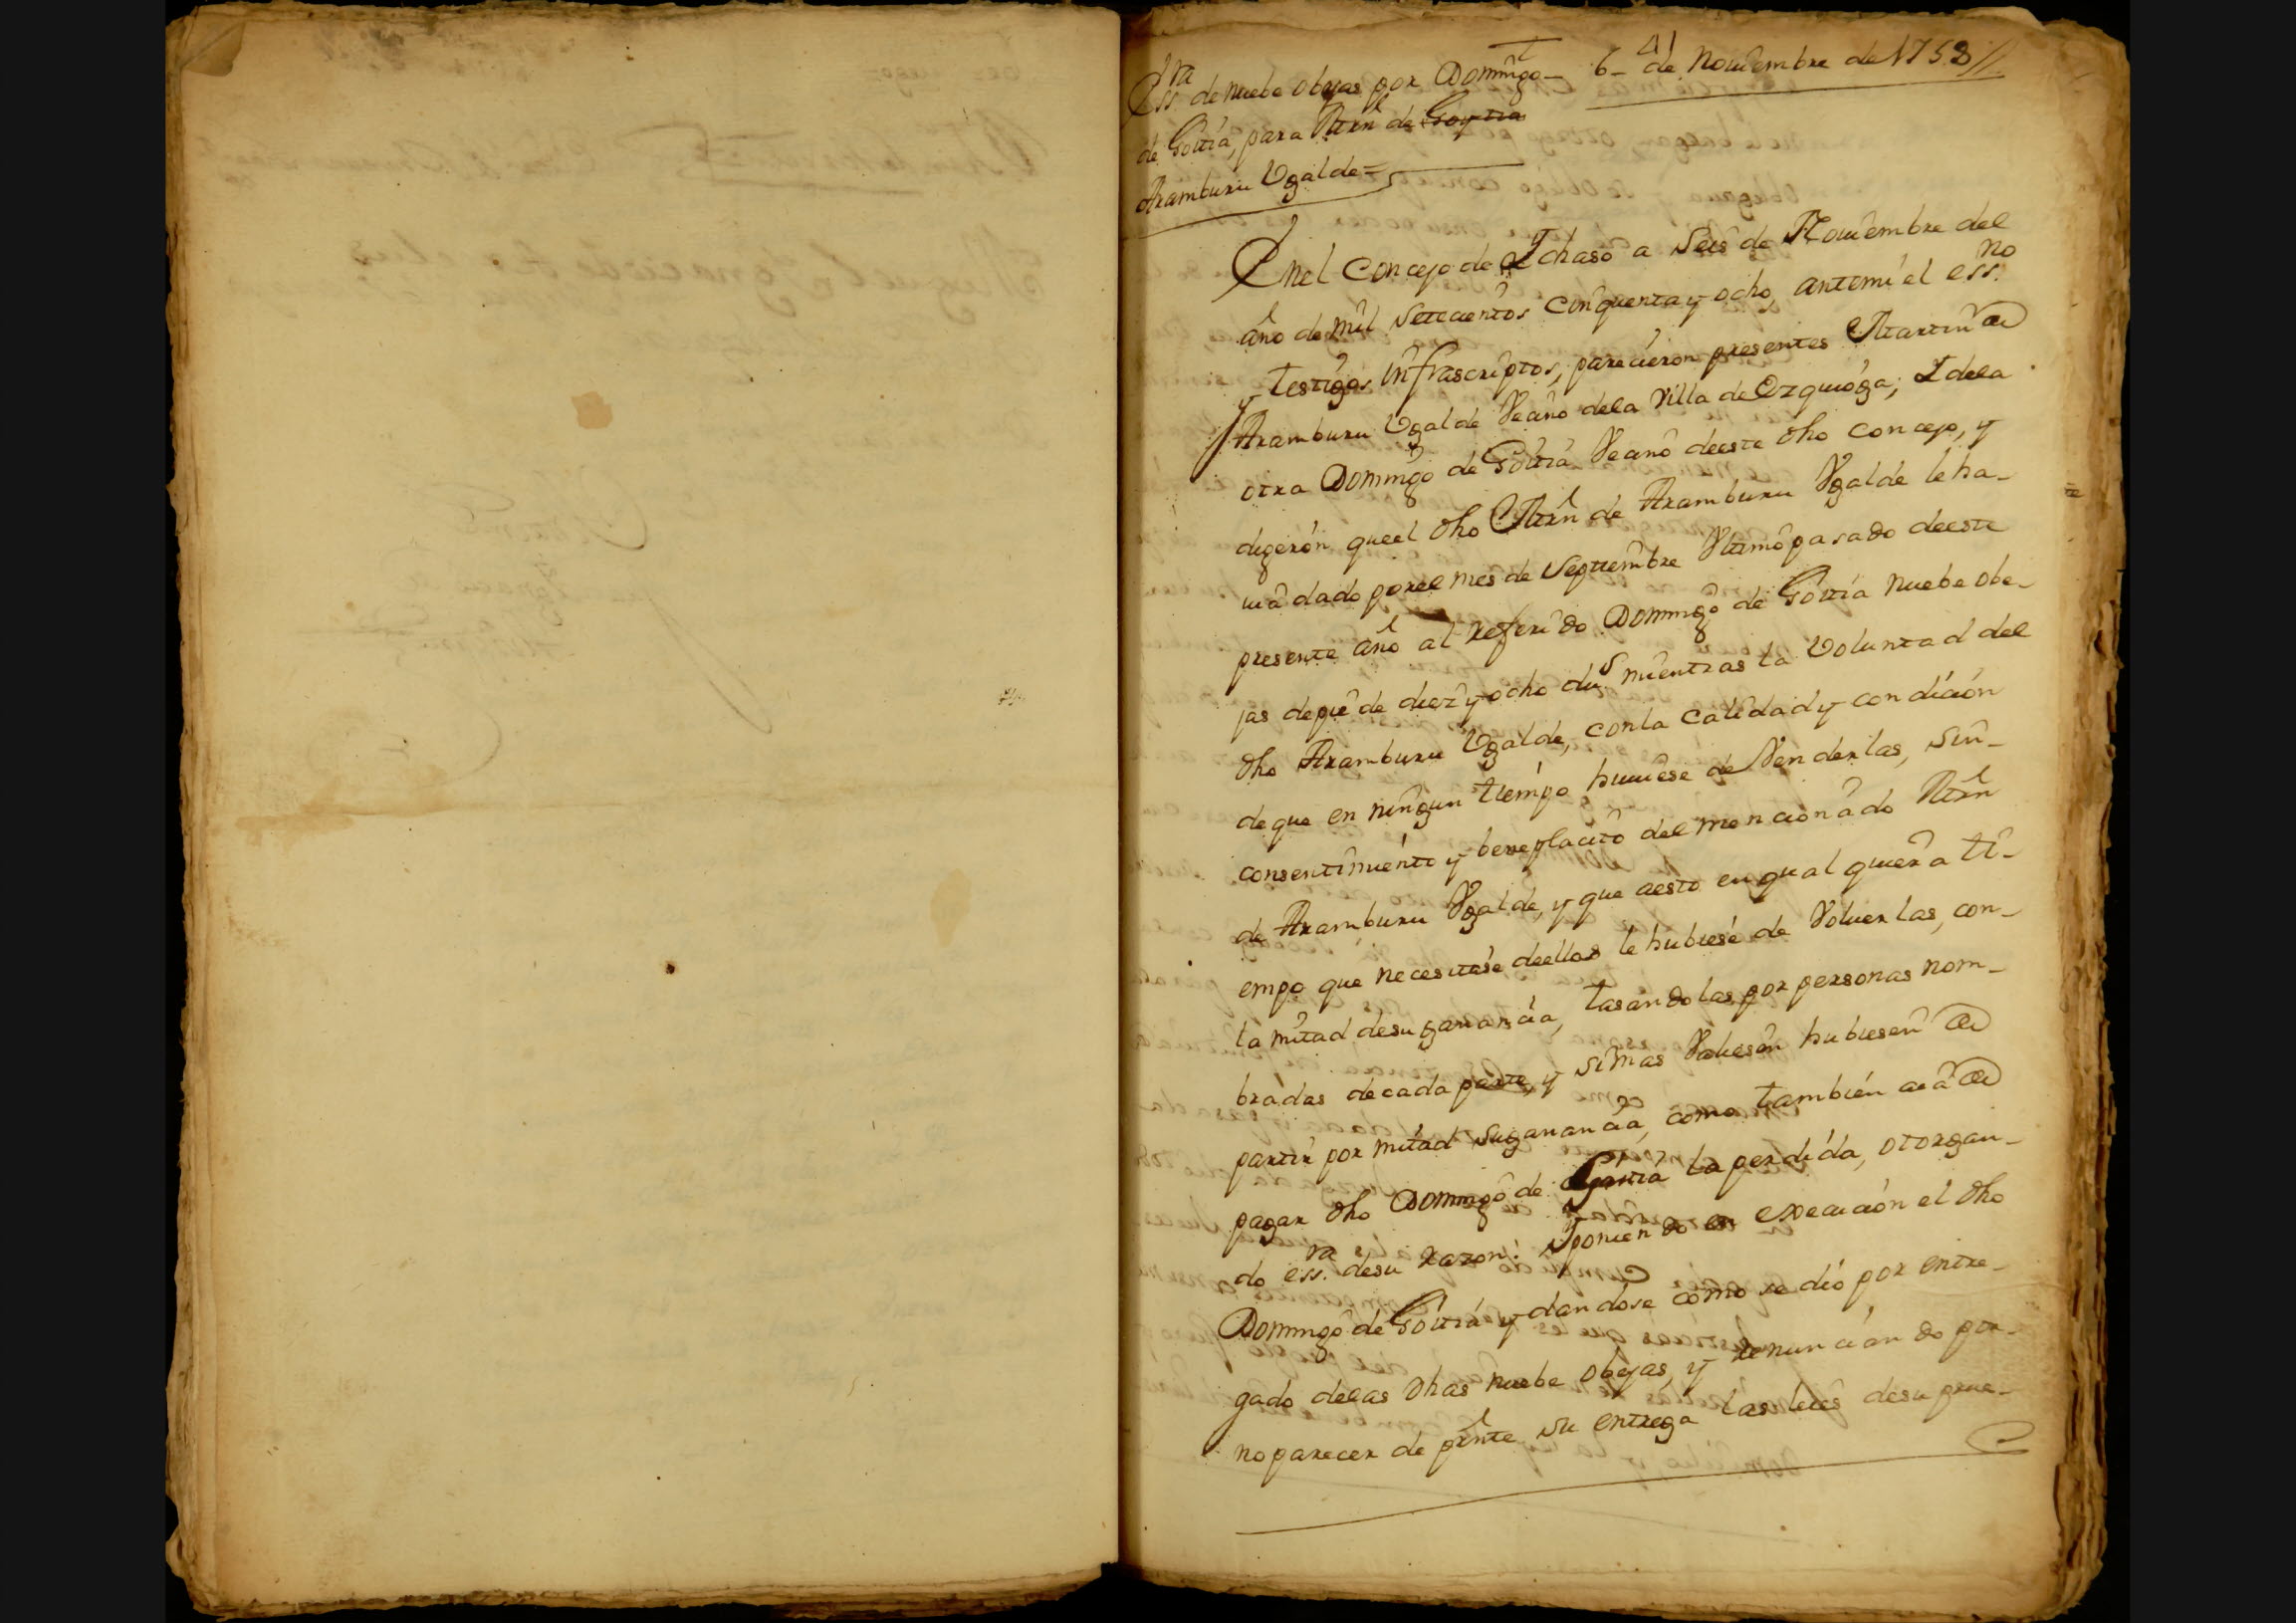 41
Essra de nuebe obejas por Domingo
de Goitia, para Mrn de Goytia
Aramburu Ugalde =
6 de Nouiembre de 1758 //
En el Concejo de Ichaso a Seis de Nouiembre del
año de mil Setecientos Cinquenta y ocho, ante mi el essno
y testigos infrascriptos, parecieron presentes Martin de
Aramburu Ugalde Vecino dela Villa de Ezquioga; I dela
otra Domingo de Goitia Vecino deeste dho Concejo, y
digeron queel dho Mrn de Aramburu Vgalde le ha-
uia dado porel mes de Septiembre Vltimo pasado deeste
presente año al referido Domingo de Goitia nuebe obe-
jas depie de diez y ocho dus mientras la Voluntad del
dho Aramburu Ugalde, con la Calidad y condicion
de que en ningun tiempo huuiese de Venderlas, sin-
consentimiento y beneplacito del mencionado Mrn
de Aramburu Vgalde, y que aesto en qual quiera ti-
empo que necesitase deellas le hubiese de Voluerlas, con-
la mitad desu ganancia, tasandolas por personas nom-
bradas de cada parte, y si mas Valiesen hubiesen de
partir por mitad su ganancia, como tambien de
pagar dho Domingo de Goitia la perdida, otorgan-
do essra desu razon: I poniendo en execucion el dho
Domingo de Goitia y dandose como se dió por entre-
gado delas dhas nuebe obejas, y renunciando por-
no parecer de prnte su entrega las leies desu prue-